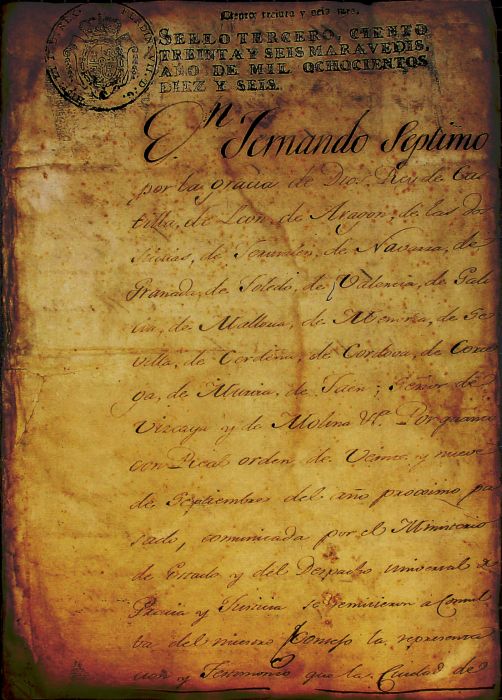 Ciento treinta y seis mrs.
SELLO TERCERO, CIENTO
TREINTA Y SEIS MARAVEDIS,
AÑO DE MIL OCHOCIENTOS
DIEZ Y SEIS.
Dn Fernando Septimo
por la gracia de Dios Rey de Cas
tilla, de Leon, de Aragon, de las dos
Sicilias, de Jerusalen, de Navarra, de
Granada, de Toledo, de Valencia, de Gali
cia, de Mallorca, de Menorca, de Se
villa, de Cerdeña, de Cordova, de Corce
ga, de Murcia, de Jaen; Señor de
Vizcaya y de Molina &c. Por quanto
con Real orden, de Veinte y nueve
de Septiembre del año proximo pa
sado, comunicada por el Ministerio
de Estado y del Despacho universal de
Gracia y Justicia se remitieron a Consul
ta del nuestro Consejo la representa
cion y Testimonio que la Ciudad de